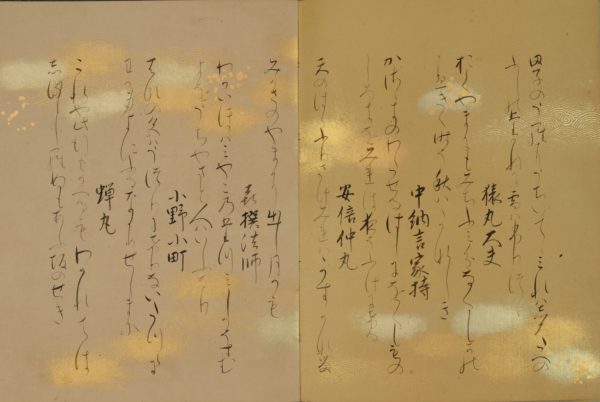 田子のうらにうちいてゝみれは白妙の
ふしのたかねに雪はふりつゝ
猿丸大夫
おくやまにもみちふみわけなくしかの
こゑきく時そ秋はかなしき
中納言家持
かさゝきのわたせるはしにをくしもの
しろきをみれは夜そふけにける
安倍仲丸
天のはらふりさけみれはかすかなる
みかさのやまに出し月かも
喜撰法師
わかいほはみやこのたつみしかそすむ
よをうちやまと人はいふなり
小野小町
はなの色はうつりにけりないたつらに
わかみよにふるなかめせしまに
蝉丸
これや此ゆくもかへるもわかれては
しるもしらぬもあふ坂のせき